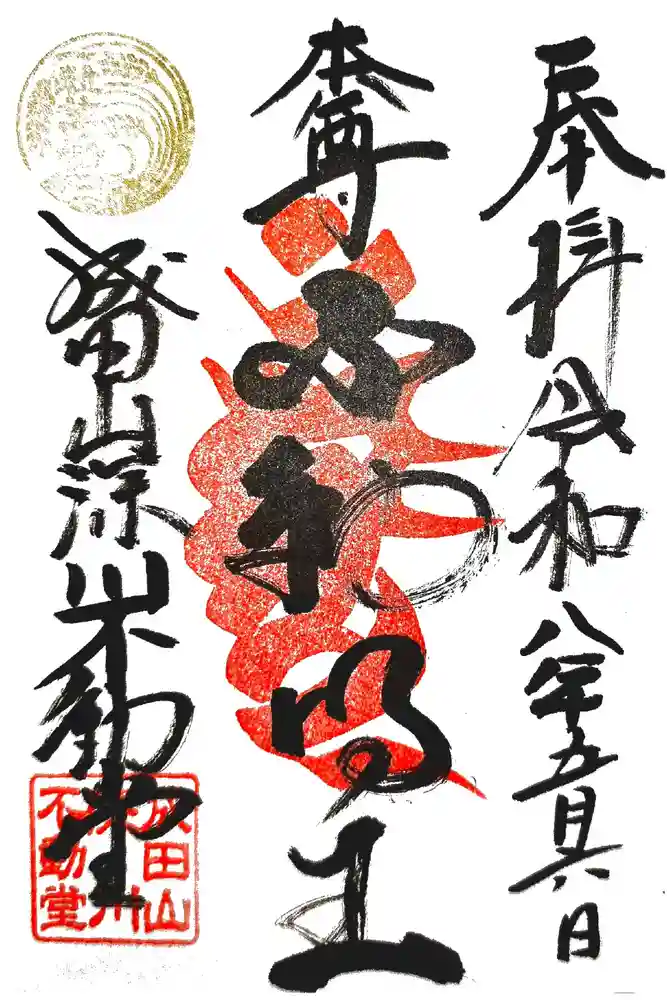 奉拝 令和八年五月六日
本尊 不動明王
成田山深川不動堂
成田山
深川
不動堂